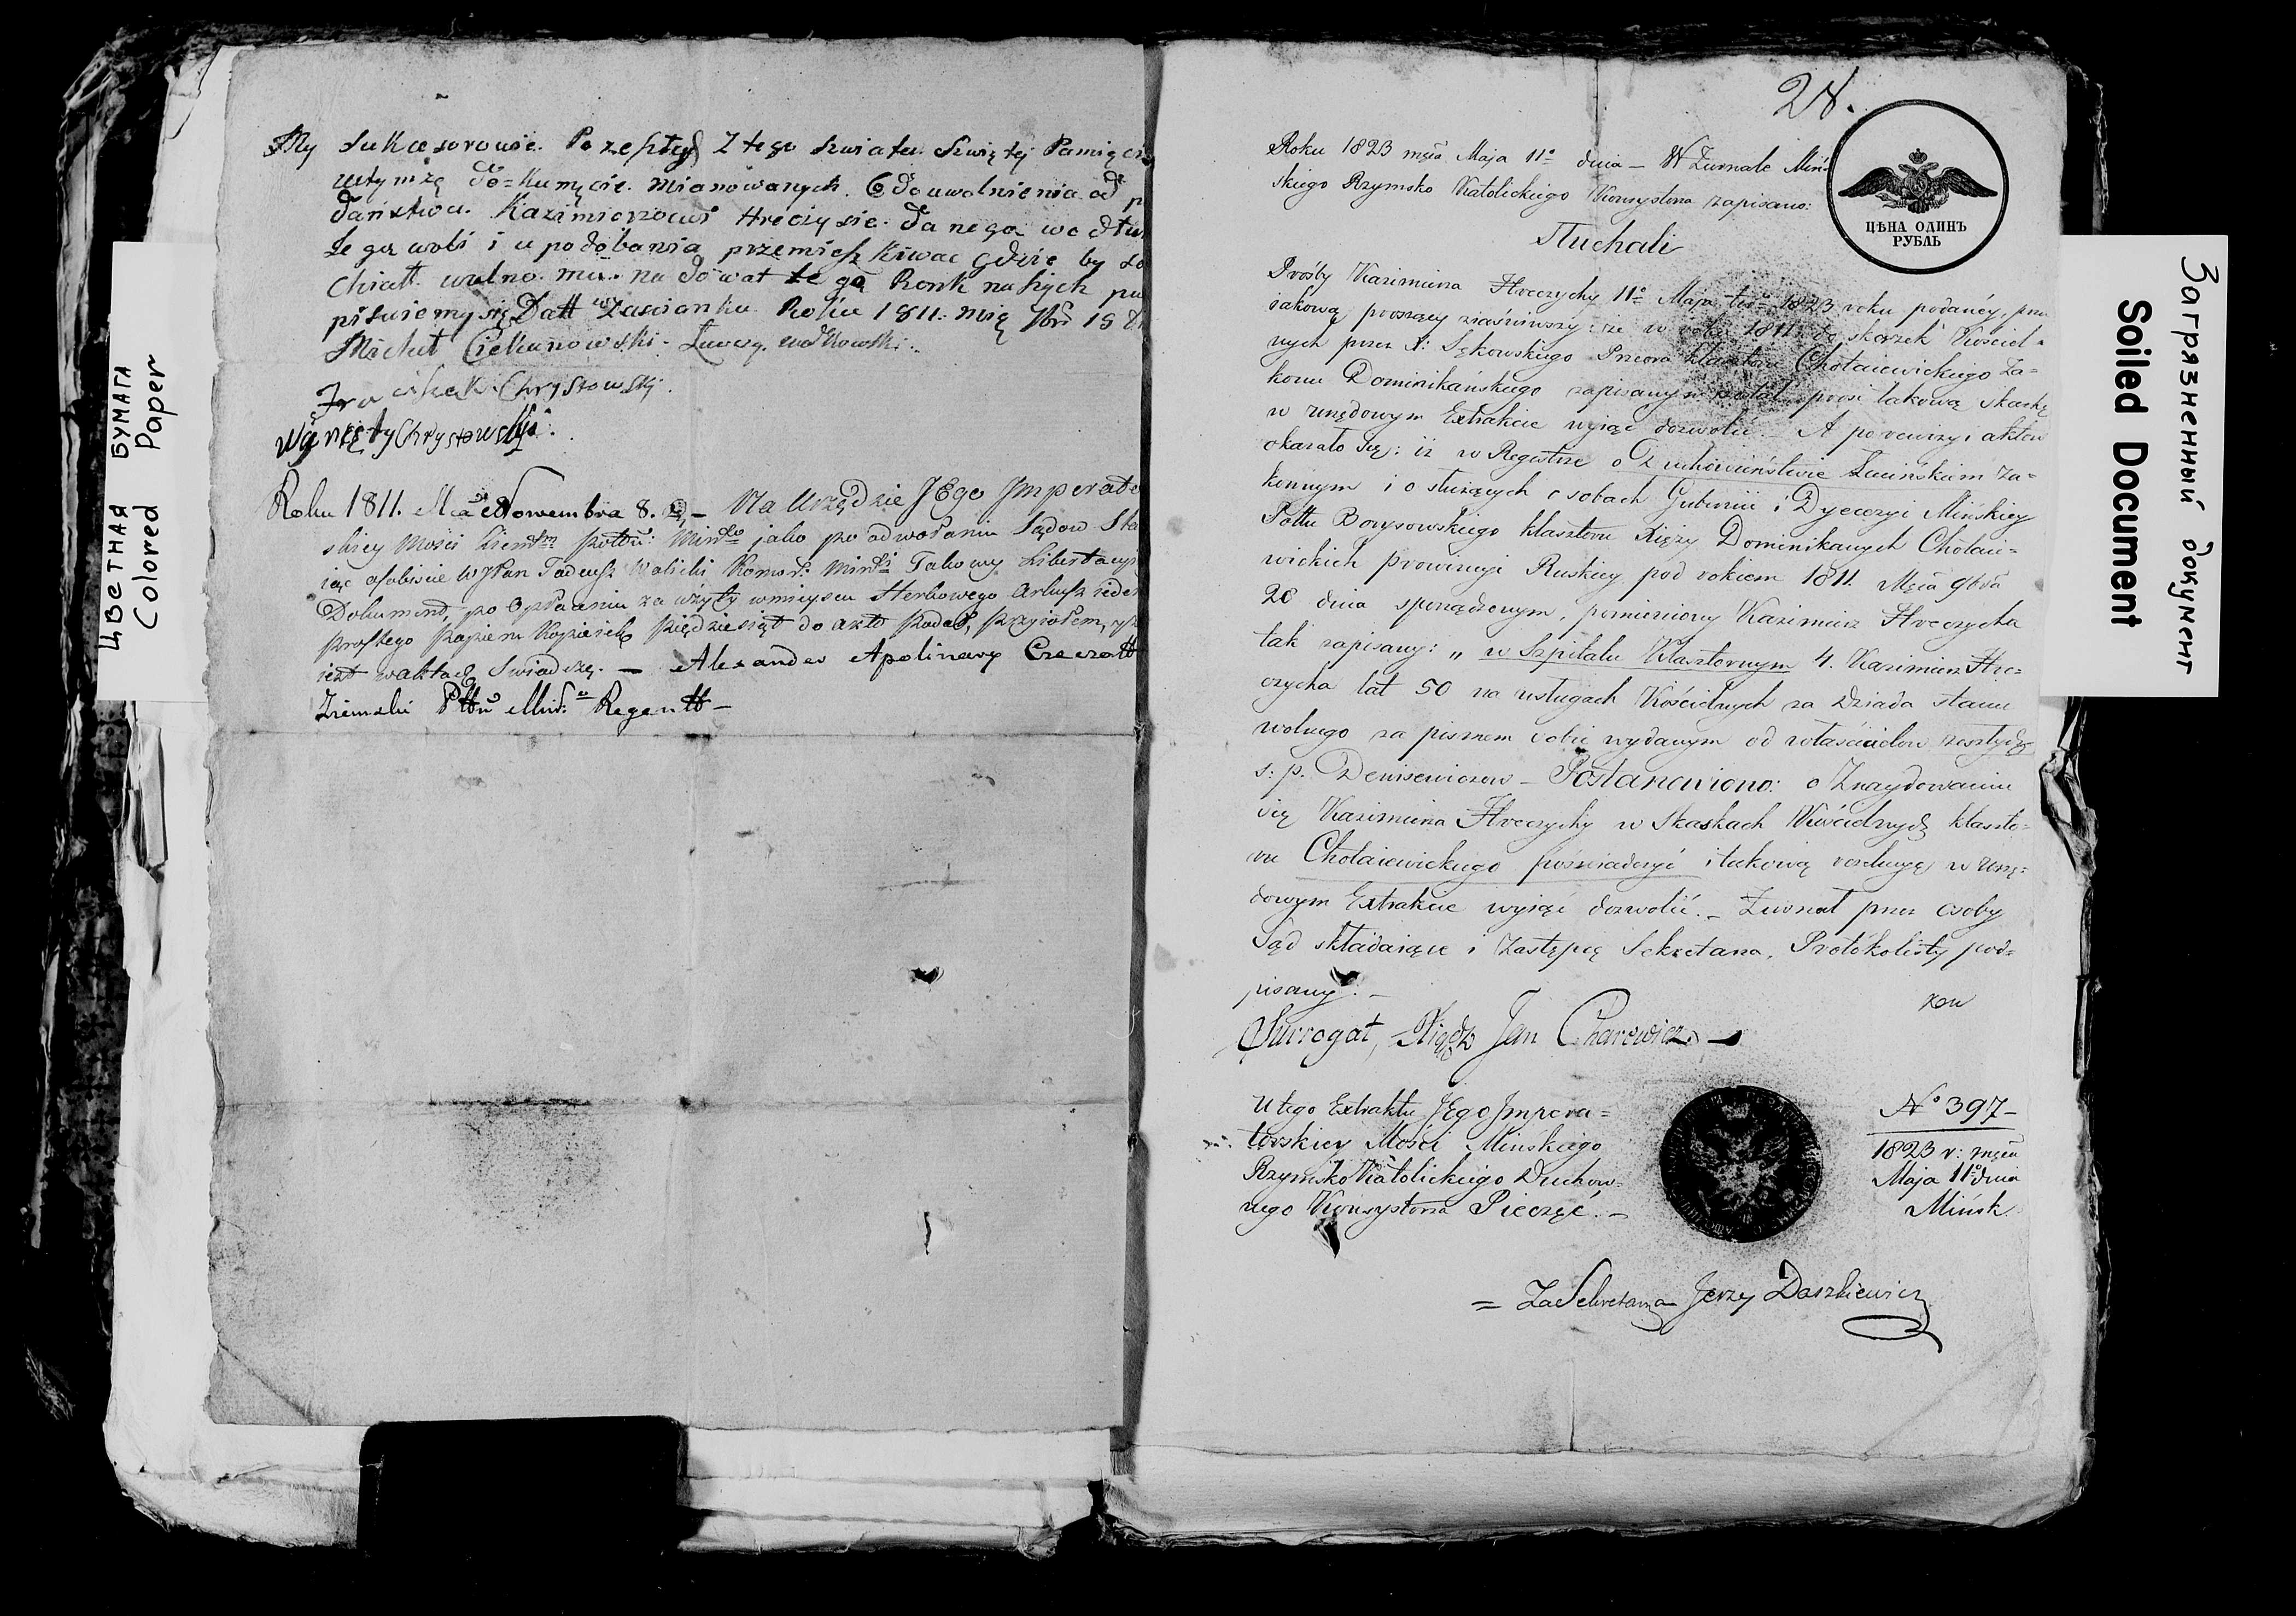 ЦВЕТНАЯ БУМАГА
Colored Paper
My Sukcesorowie Pozeszłych Z tego Swiata Swiętej Pamięci
wtymże do=kumęcie mianowanych. Co do uwolnienia od
daństwa. Kazimierzowi Hreczysie danego wedłu
tego woli i upodobania przemieszkiwac gdzie by
chciałł wolno mu na dowat tego Ronk naszych
pisuiemy się Datt w Zascianku Roku 1811. mię 18
Michał Ciekanowski. Wałkowski.
Chrystowski.
Wincęty Chrystowski.
Roku 1811. Mca Nowembra 8. D. – Na Urzędzie JEgo Imperato
skiey Mosci Ziem. Pottu: Min. jako po odwołaniu Sądow
iąc osobiscie WJPan Tadeusz Walicki Komor. Min. Takowy Libertacyi
Dokument, po Opłaceniu za użyty wmieyscu Herbowego Arkusz ieden
prostego papieru kopieiek pięćdziesiąt do akt podał, przyiołem,
iest waktach Swiadczę. – Alexander Apolinary Czeczott
Ziemski Pttu Min. Regentt –
28.
ЦѢНА ОДИНЪ
РУБЛЬ
Roku 1823 męca Maja 11º dnia – W Zurnale Miń-
skiego Rzymsko Katolickiego Konsystorza zapisano:
Słuchali
Prośby Kazimierza Hreczychy 11º Maja 1823 roku podanéy, przez
iakową proszący ziaśniwszy: że w roku 1811 do skazek Kościel=
nych przez X: Sękowskiego Przeora klasztoru Chołaiewickiego Za=
konu Dominikańskiego zapisanym został, prosi takową skazkę
w urzędowym Extrakcie wyiąć dozwolić. A po rewizyi aktow
okazało się: iż w Regestrze o Duchowieństwie Łacińskiem Za=
konnym i o służących osobach Gubernii i Dyecezyi Mińskiey
Pottu Borysowskiego klasztoru Xięży Dominikanych Chołaie=
wickich prowincyi Ruskiey pod rokiem 1811 Męca 9bra
28 dnia sporządzonym, pomieniony Kazimierz Hreczycha
tak zapisany: „ w Szpitalu Klasztornym 4. Kazimierz Hre=
czycha lat 50 na usługach Kościelnych za Dziada stanu
wolnego za pismem sobie wydanym od właścicielow zeszłych
s: p. Denisewiczow – Postanowiono: o Znaydowaniu
się Kazimierza Hreczychy w Skazkach Kościelnych klaszto=
ru Chołaiewickiego poświadczyć i takową rezolucyę w Urzę=
dowym Extrakcie wyiąć dozwolić. – Zurnał przez osoby
Sąd składaiące i Zastępcę Sekretarza, Protokolisty pod=
pisany. –
Surrogat, Xiądz Jan Charewicz. –
U tego Extraktu JEgo Impera=
torskiey Mości Mińskiego
Rzymsko Katolickiego Duchow=
nego Konsystorza Pieczęć. –
Nº 397 –
1823 r: męca
Maja 11º dnia
Mińsk
= Za Sekretarza Jerzy Daszkiewicz
Загрязненный документ
Soiled Document